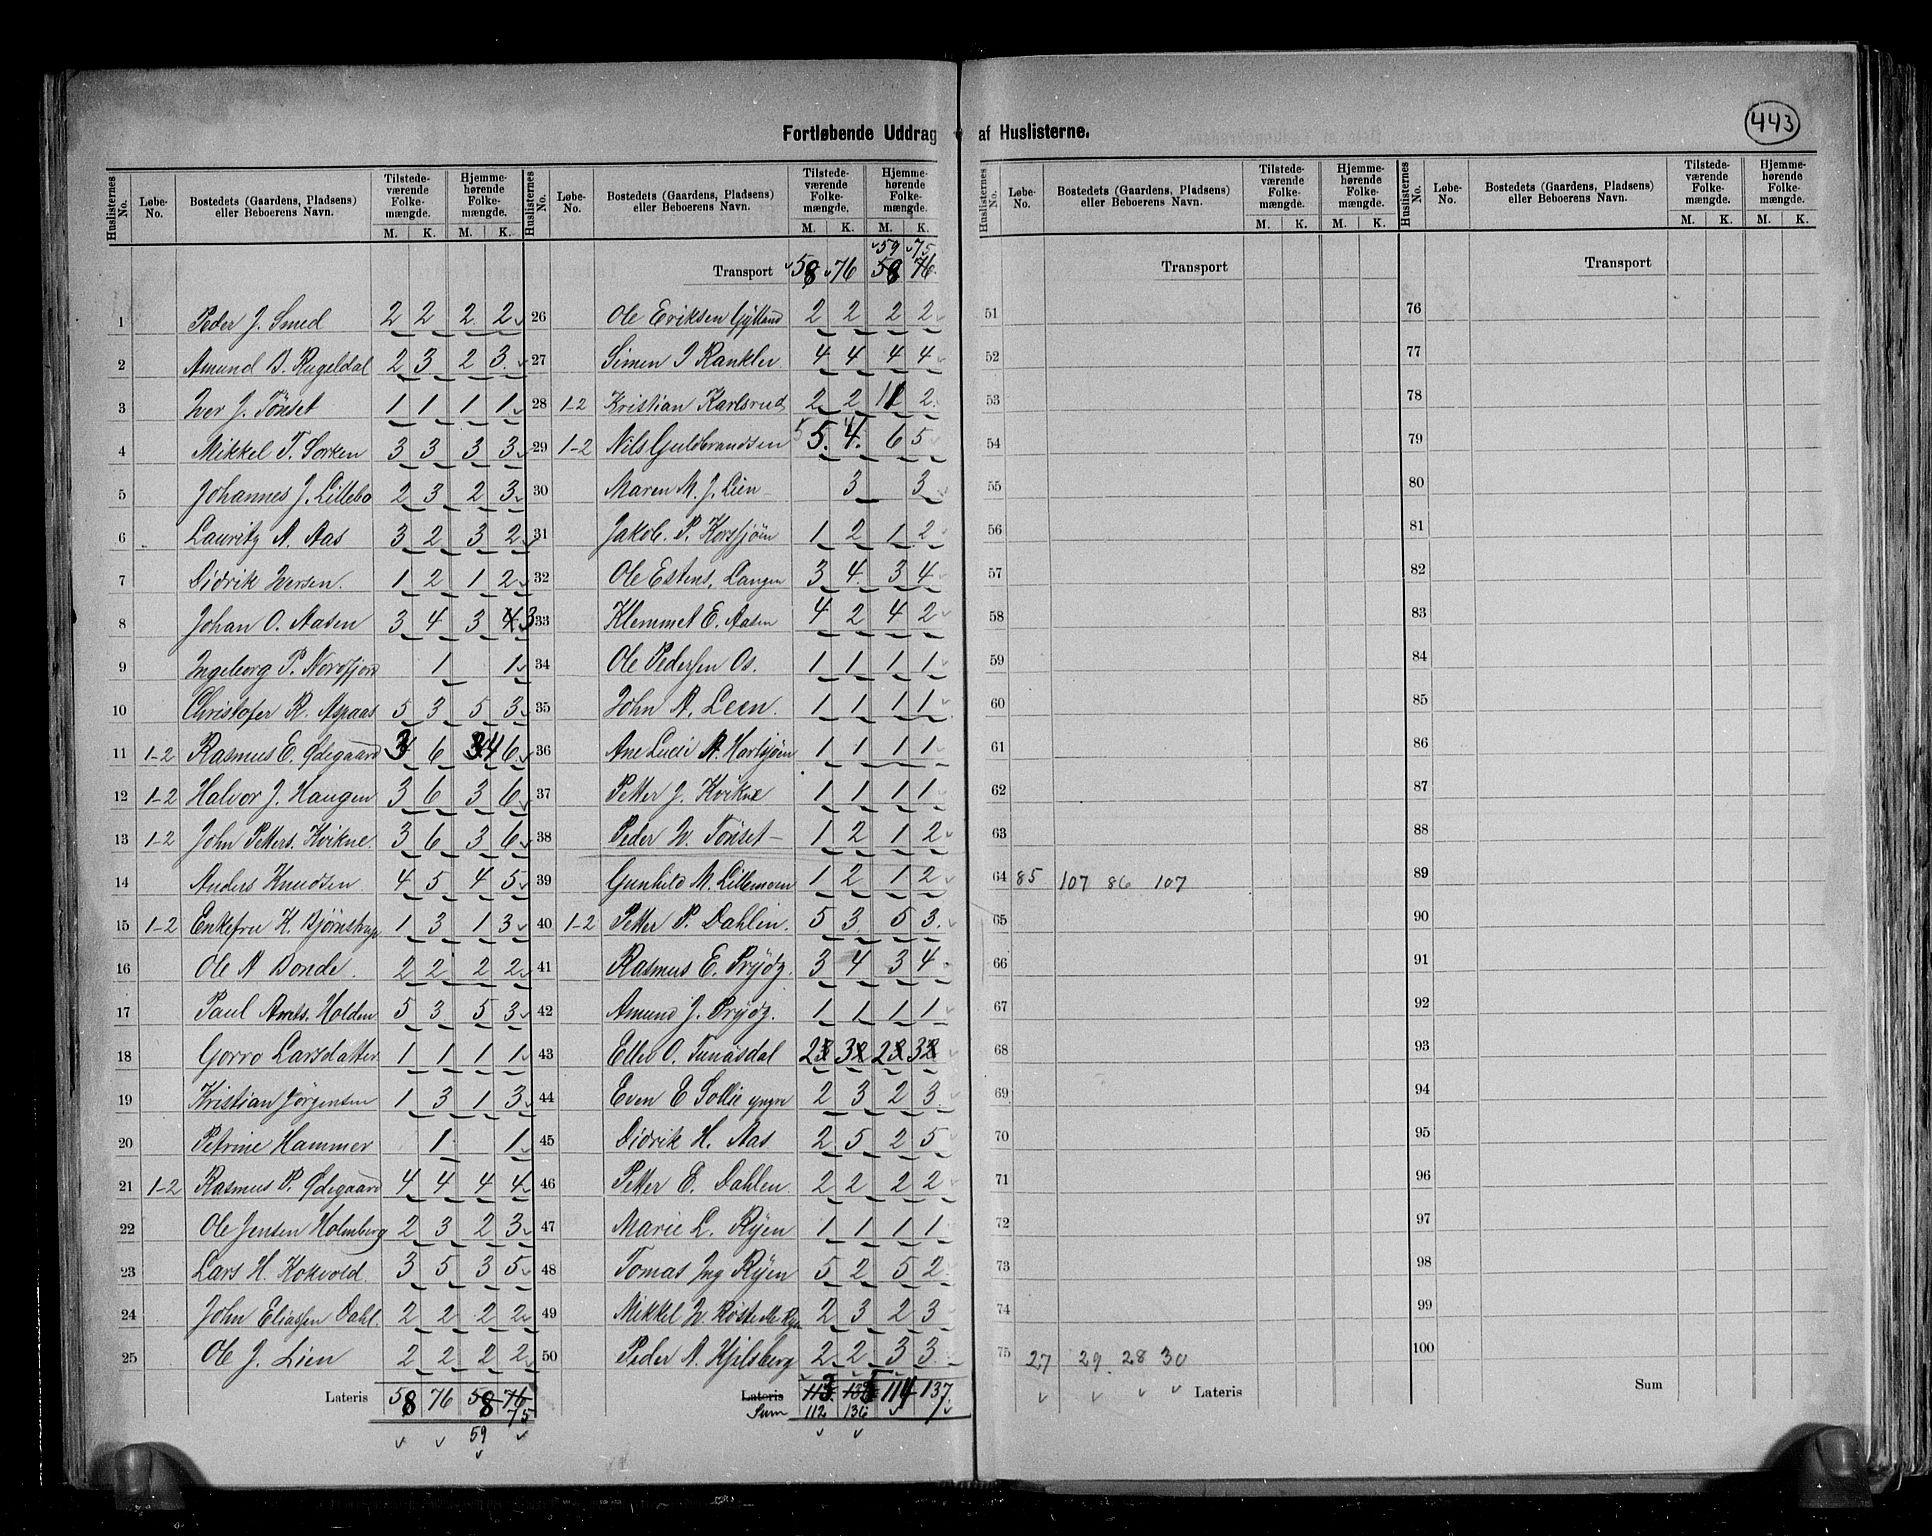 Fortløbende Uddrag af Huslisterne.
443
Huslisternes No. Løbe-No. Bostedets (Gaardens, Pladsens) eller Beboerens Navn. Tilstedeværende Folkemængde. M. K. Hjemmehørende Folkemængde. M. K.
1 Peder J. Smed 2 2 2 2
2 Amund B. Rugeldal 2 3 2 3
3 Iver J. Tönset 1 1 1 1
4 Mikkel T. Sorken 3 3 3 3
5 Johannes J. Lillebo 2 3 2 3
6 Lauritz A. Aas 3 2 3 2
7 Didrik Iversen. 1 2 1 2
8 Johan O. Aasen 3 4 3 4 3
9 Ingeborg P. Norsfjord 1 1
10 Christofer R. Aspaas 5 3 5 3
11 1-2 Rasmus E. Ødegaard 3 6 3 4 6
12 1-2 Halvor J. Haugen 3 6 3 6
13 1-2 John Petters. Kvikne. 3 6 3 6
14 Anders Knudsen 4 5 4 5
15 1-2 Enkefru H. Bjørnstrup 1 3 1 3
16 Ole A Bonde. 2 2 2 2
17 Paul Arnts. Holden 5 3 5 3
18 Gorro Larsdatter 1 1 1 1
19 Kristian Jörgensen 1 3 1 3
20 Petrine Hammer 1 1
21 1-2 Rasmus P. Ødegaard 4 4 4 4
22 Ole Jensen Holmberg 2 3 2 3
23 Lars H. Kokvold. 3 5 3 5
24 John Eliassen Dahl. 2 2 2 2
25 Ole J. Lien 2 2 2 2
Lateris 58 76 58 76
59 75
Huslisternes No. Løbe-No. Bostedets (Gaardens, Pladsens) eller Beboerens Navn. Tilstedeværende Folkemængde. M. K. Hjemmehørende Folkemængde. M. K.
59 75
Transport 58 76 58 76
26 Ole Eriksen Gylland 2 2 2 2
27 Simen J Rankler 4 4 4 4
28 1-2 Kristian Karlsrud 2 2 1 2
29 1-2 Nils Guldbrandsen 5 5. 4. 6 5
30 Maren M. J. Lien 3 3
31 Jakob. P. Korssjöin 1 2 1 2
32 Ole Estens. Langen 3 4 3 4
33 Klemmet E. Aasen 4 2 4 2
34 Ole Pedersen Os. 1 1 1 1
35 John A. Leen. 1 1 1 1
36 Ane Lucie A. Harsjöen 1 1 1 1
37 Petter J. Kvikne 1 1 1 1
38 Peder Iv. Tönset 1 2 1 2
39 Gunhild M. Lillemoen 1 2 1 2
40 1-2 Petter P. Dahlin. 5 3 5 3
41 Rasmus E. Prÿdz. 3 4 3 4
42 Amund J. Prÿdz. 1 1 1 1
43 Eller O. Tunäsdal 23 32 23 32
44 Even E Sollie yngre 2 3 2 3
45 Didrik H. Aas 2 5 2 5
46 Petter E. Dahlen. 2 2 2 2
47 Marie L. Rÿen 1 1 1 1
48 Tomas Ing Rÿen 5 2 5 2
49 Mikkel Iv. 2 3 2 3
50 Peder A. Kjelsberg 2 2 3 3
Lateris 113 135 114 137
Sum 112 136
Huslisternes No. Løbe-No. Bostedets (Gaardens, Pladsens) eller Beboerens Navn. Tilstedeværende Folkemængde. M. K. Hjemmehørende Folkemængde. M. K.
Transport
51
52
53
54
55
56
57
58
59
60
61
62
63
64 85 107 86 107
65
66
67
68
69
70
71
72
73
74
75 27 29 28 30
Lateris
Huslisternes No. Løbe-No. Bostedets (Gaardens, Pladsens) eller Beboerens Navn. Tilstedeværende Folkemængde. M. K. Hjemmehørende Folkemængde. M. K.
Transport
76
77
78
79
80
81
82
83
84
85
86
87
88
89
90
91
92
93
94
95
96
97
98
99
100
Sum